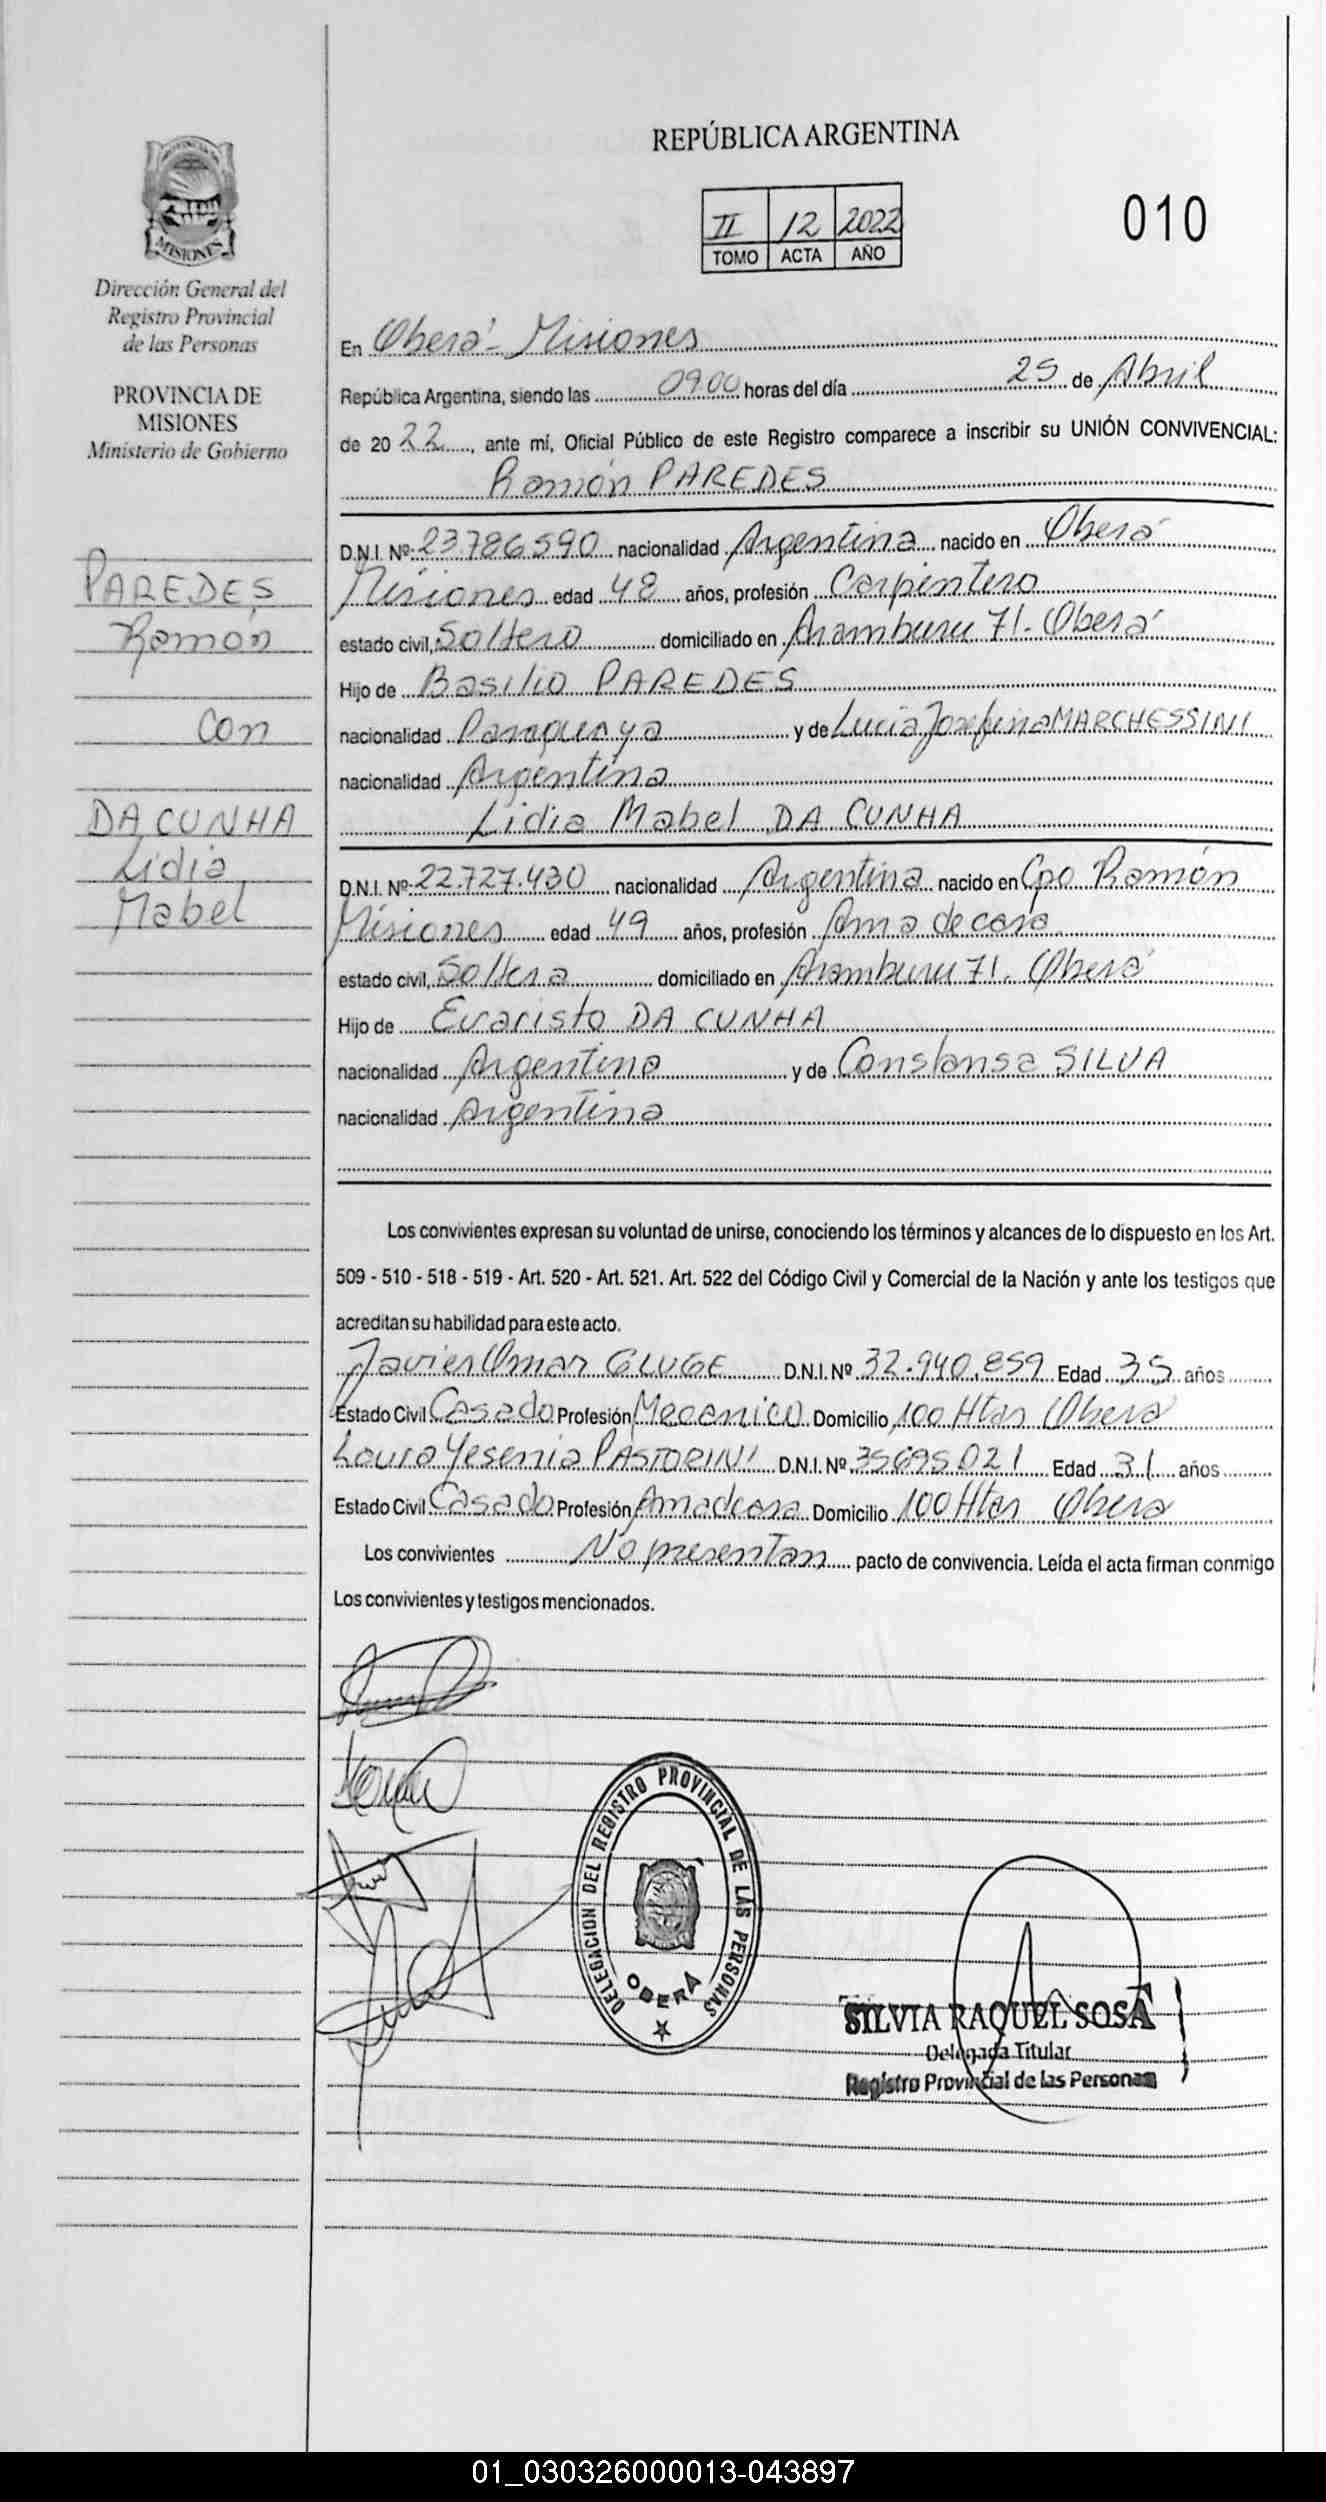 PROVINCIA DE
MISIONES
Dirección General del
Registro Provincial
de las Personas
PROVINCIA DE
MISIONES
Ministerio de Gobierno
PAREDES
Ramón
con
DA CUNHA
Lidia
Mabel
REPÚBLICA ARGENTINA
II 12 2022
TOMO ACTA AÑO
010
En Oberá - Misiones
República Argentina, siendo las 09:00 horas del día 25 de Abril
de 2022, ante mí, Oficial Público de este Registro comparece a inscribir su UNIÓN CONVIVENCIAL:
Ramón PAREDES
D.N.I. Nº 23.786.590 nacionalidad Argentina nacido en Oberá
Misiones edad 48 años, profesión Carpintero
estado civil, Soltero domiciliado en Aramburu 71. Oberá
Hijo de Basilio PAREDES
nacionalidad Paraguaya y de Lucia Josefina MARCHESSINI
nacionalidad Argentina
Lidia Mabel DA CUNHA
D.N.I. Nº 22.727.430 nacionalidad Argentina nacido en Cpo Ramón
Misiones edad 49 años, profesión Ama de casa
estado civil, Soltera domiciliado en Aramburu 71. Oberá
Hijo de Evaristo DA CUNHA
nacionalidad Argentina y de Constansa SILVA
nacionalidad Argentina
Los convivientes expresan su voluntad de unirse, conociendo los términos y alcances de lo dispuesto en los Art.
509 - 510 - 518 - 519 - Art. 520 - Art. 521. Art. 522 del Código Civil y Comercial de la Nación y ante los testigos que
acreditan su habilidad para este acto.
Javier Omar GLUGE D.N.I. Nº 32.940.859 Edad 35 años
Estado Civil Casado Profesión Mecanico Domicilio 100 Htas Oberá
Laura Yesenia PASTORINI D.N.I. Nº 35695021 Edad 31 años
Estado Civil Casado Profesión Ama de casa Domicilio 100 Htas Oberá
Los convivientes No presentan pacto de convivencia. Leída el acta firman conmigo
Los convivientes y testigos mencionados.
DELEGACION DEL REGISTRO PROVINCIAL DE LAS PERSONAS
OBERÁ
SILVIA RAQUEL SOSA
Delegada Titular
Registro Provincial de las Personas
01_030326000013-043897